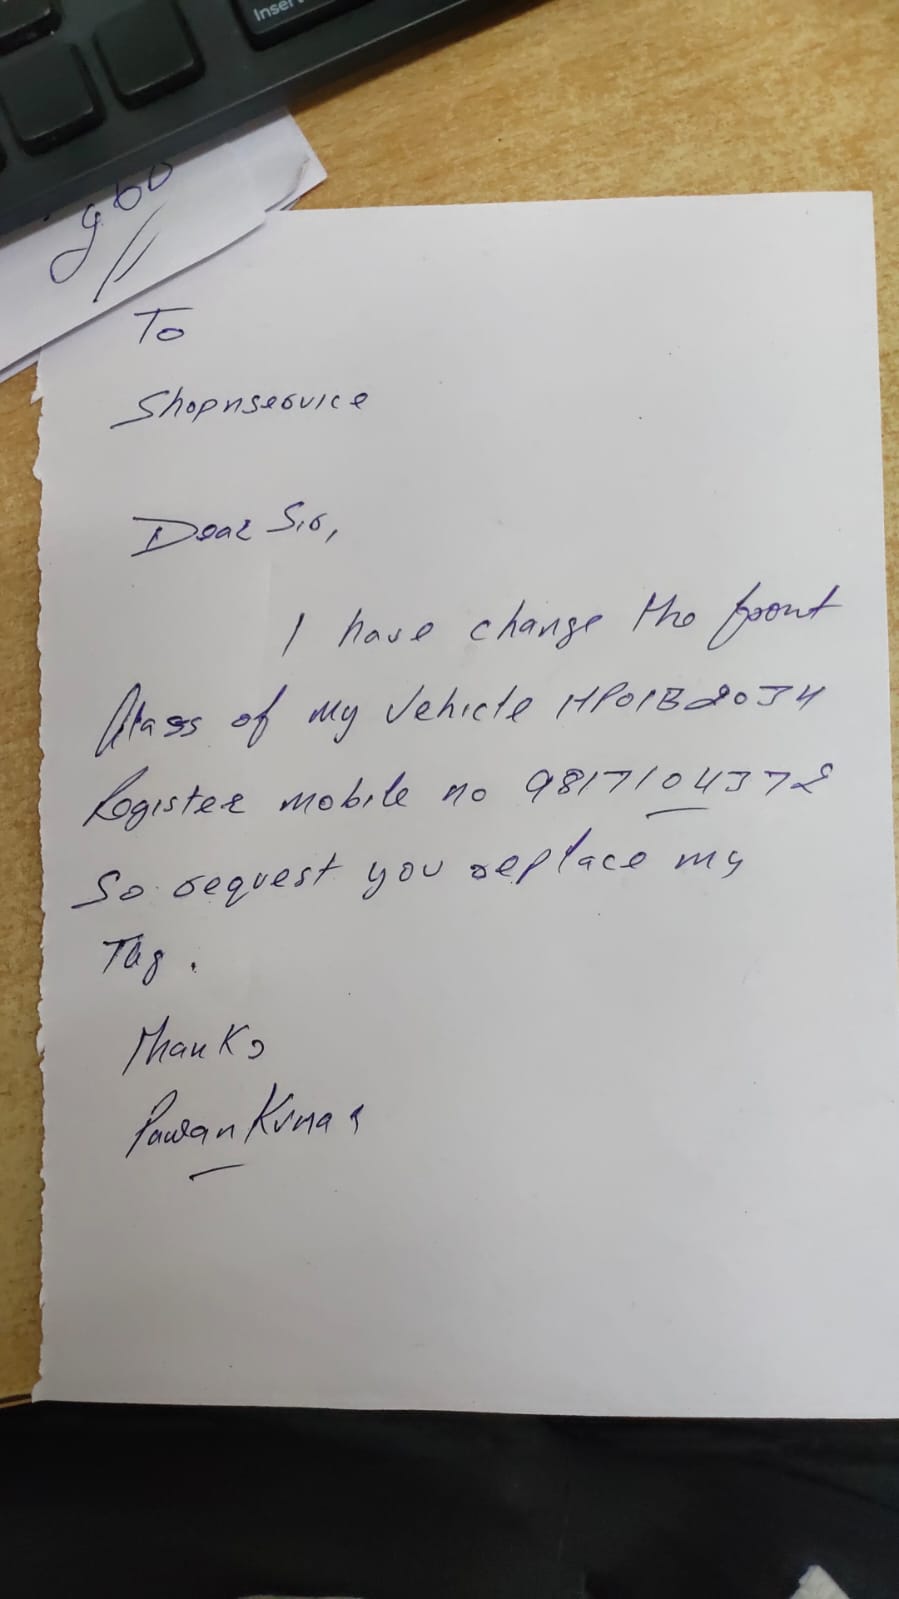 Inser
960
To
Shopnservice
Dear Sir,
I have change the front
Glass of my Vehicle HP01B2034
Register mobile no 9817104372
So request you replace my
Tag.
Thanks
Pawan Kumar